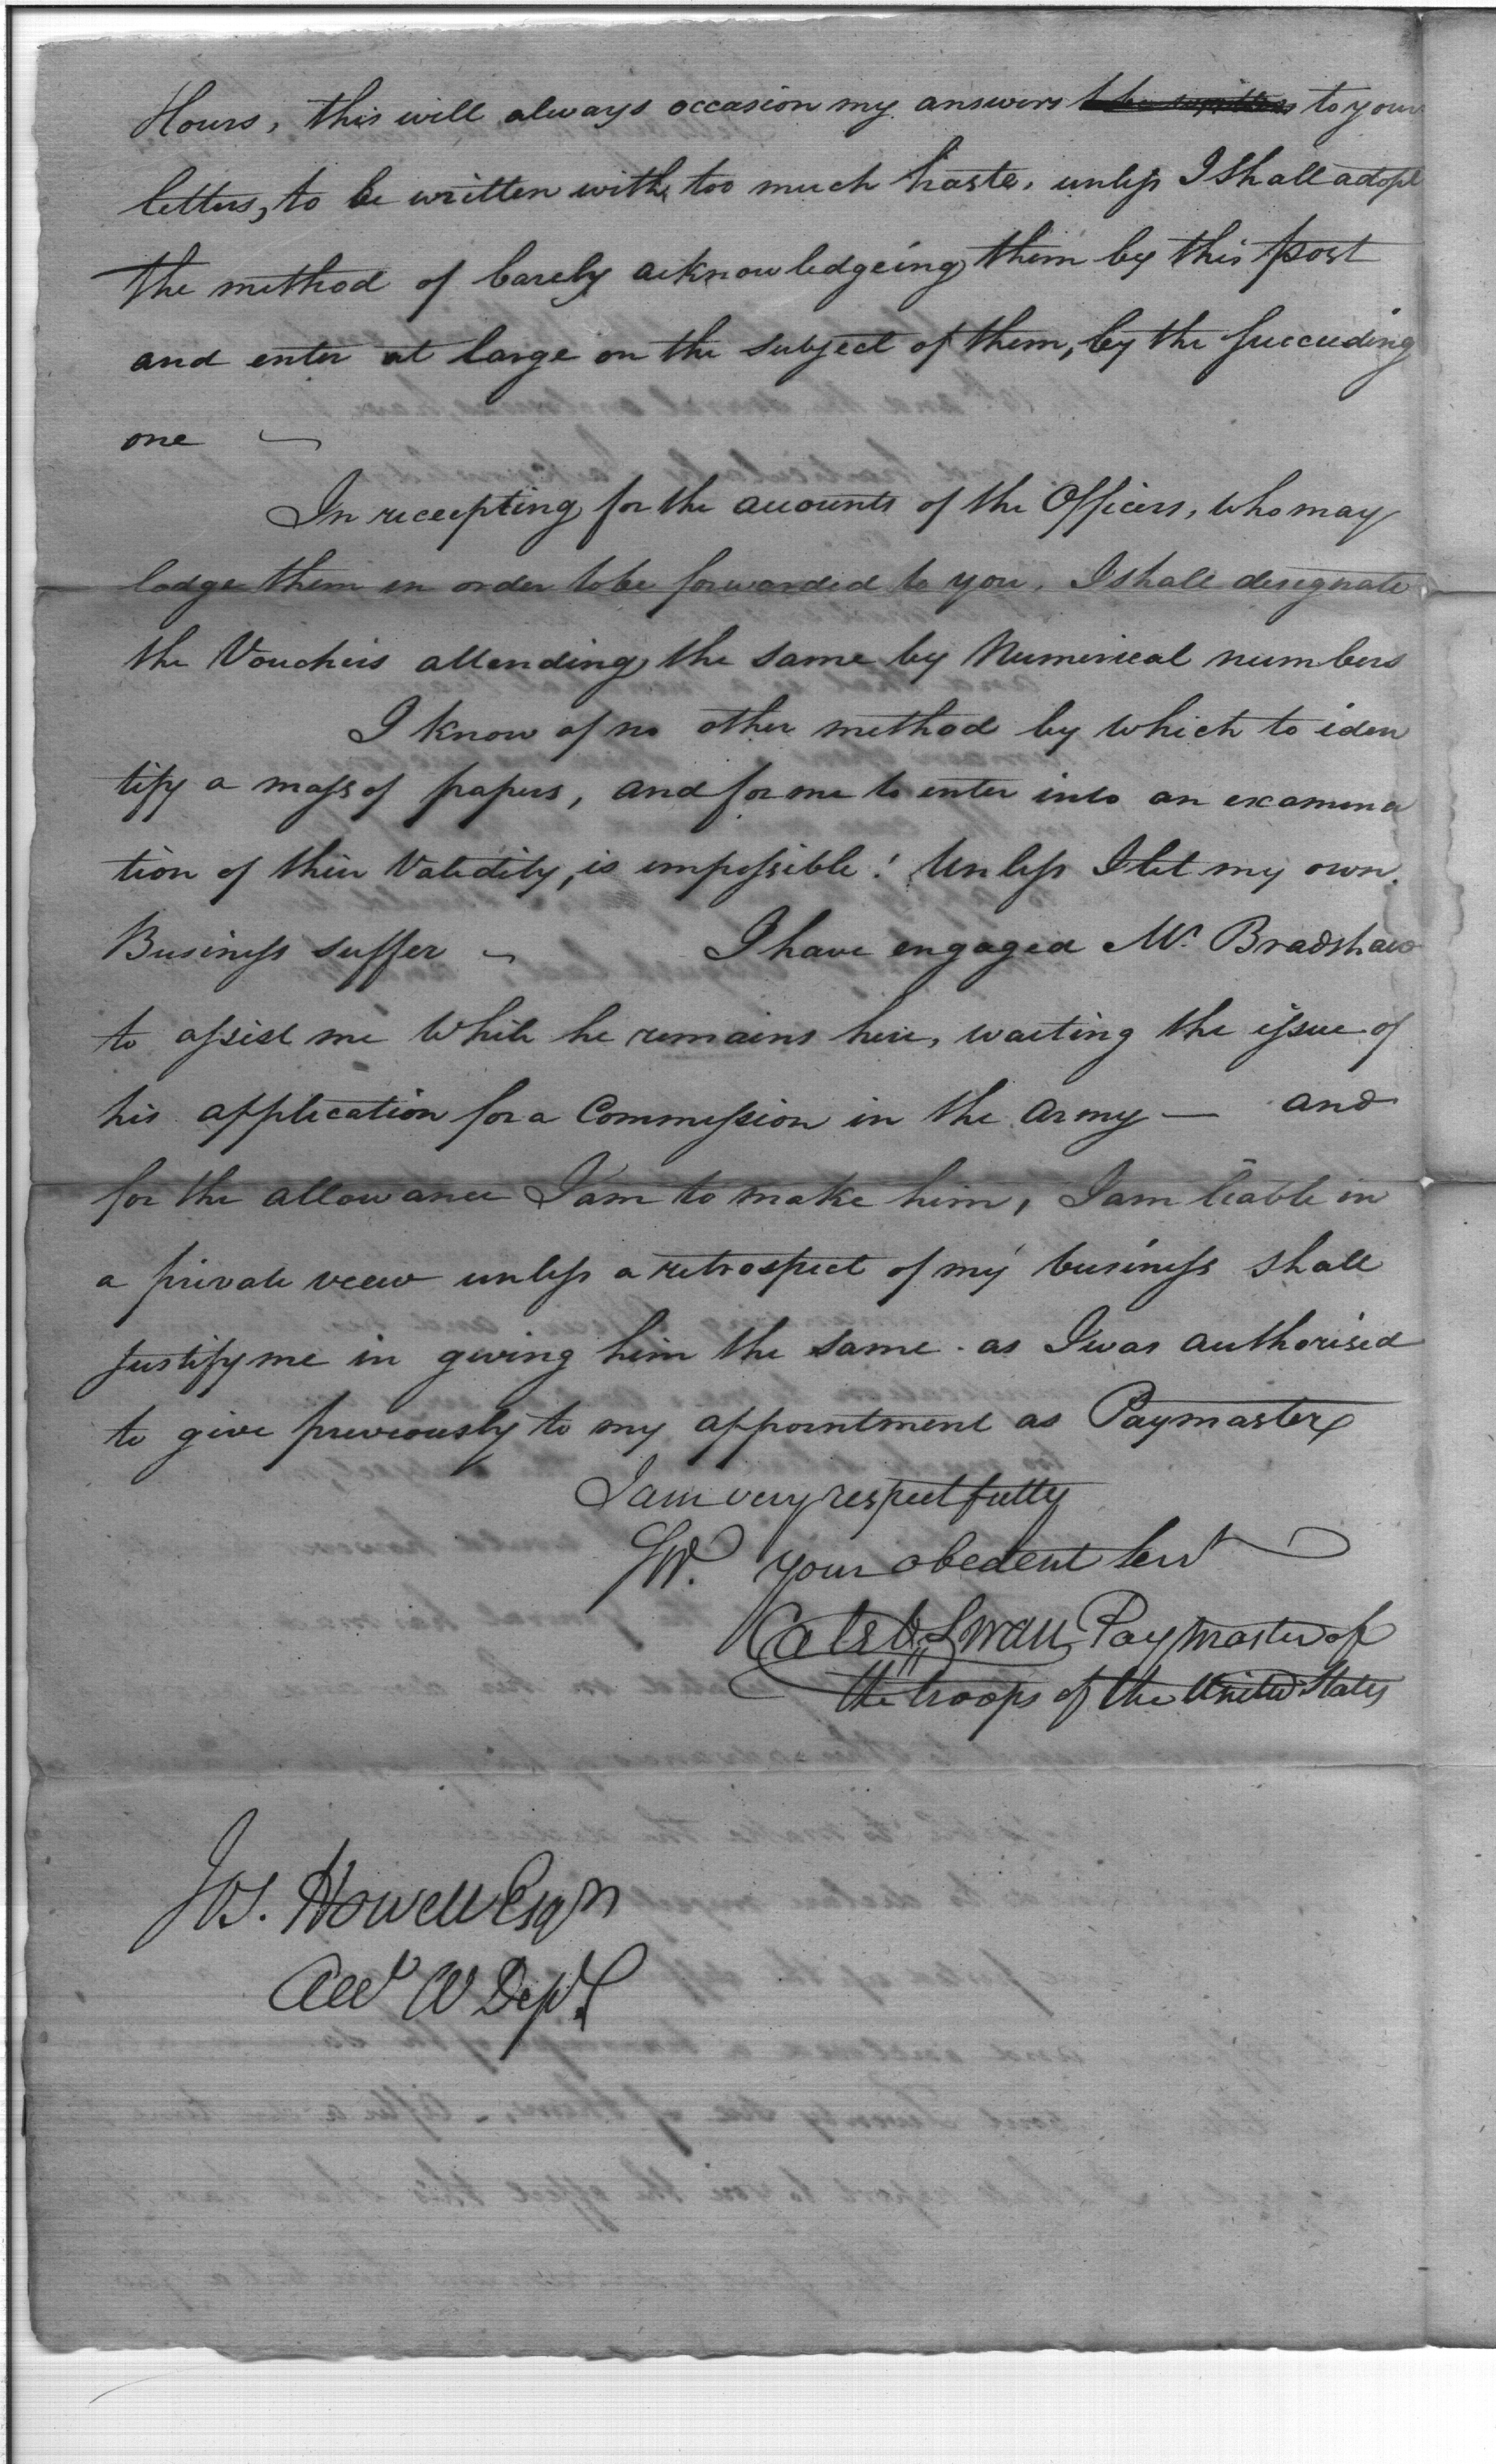 Hours, this will always occasion my answers to be written to your
letters, to be written with too much haste, unless I shall adopt
the method of barely acknowledgeing them by this post
and enter at large on the subject of them, by the succeeding
one —
In receepting for the accounts of the Officers, who may
lodge them in order to be forwarded to you, I shall designate
the Vouchers attending the same by Numerical numbers
I know of no other method by which to iden
tify a mass of papers, and for me to enter into an examina
tion of their Validity, is impossible! Unless I let my own
Business suffer — I have engaged Mr. Bradshaw
to assist me while he remains here, waiting the issue of
his application for a Commission in the army — and
for the allowance I am to make him, I am liable in
a private view unless a retrospect of my business shall
justify me in giving him the same as I was authorised
to give previously to my appointment as Paymaster
I am very respectfully
Sir. your obedent servt
Caleb Swan Paymaster of
the troops of the United States
Jos. Howell Esqr
Acct W Dept